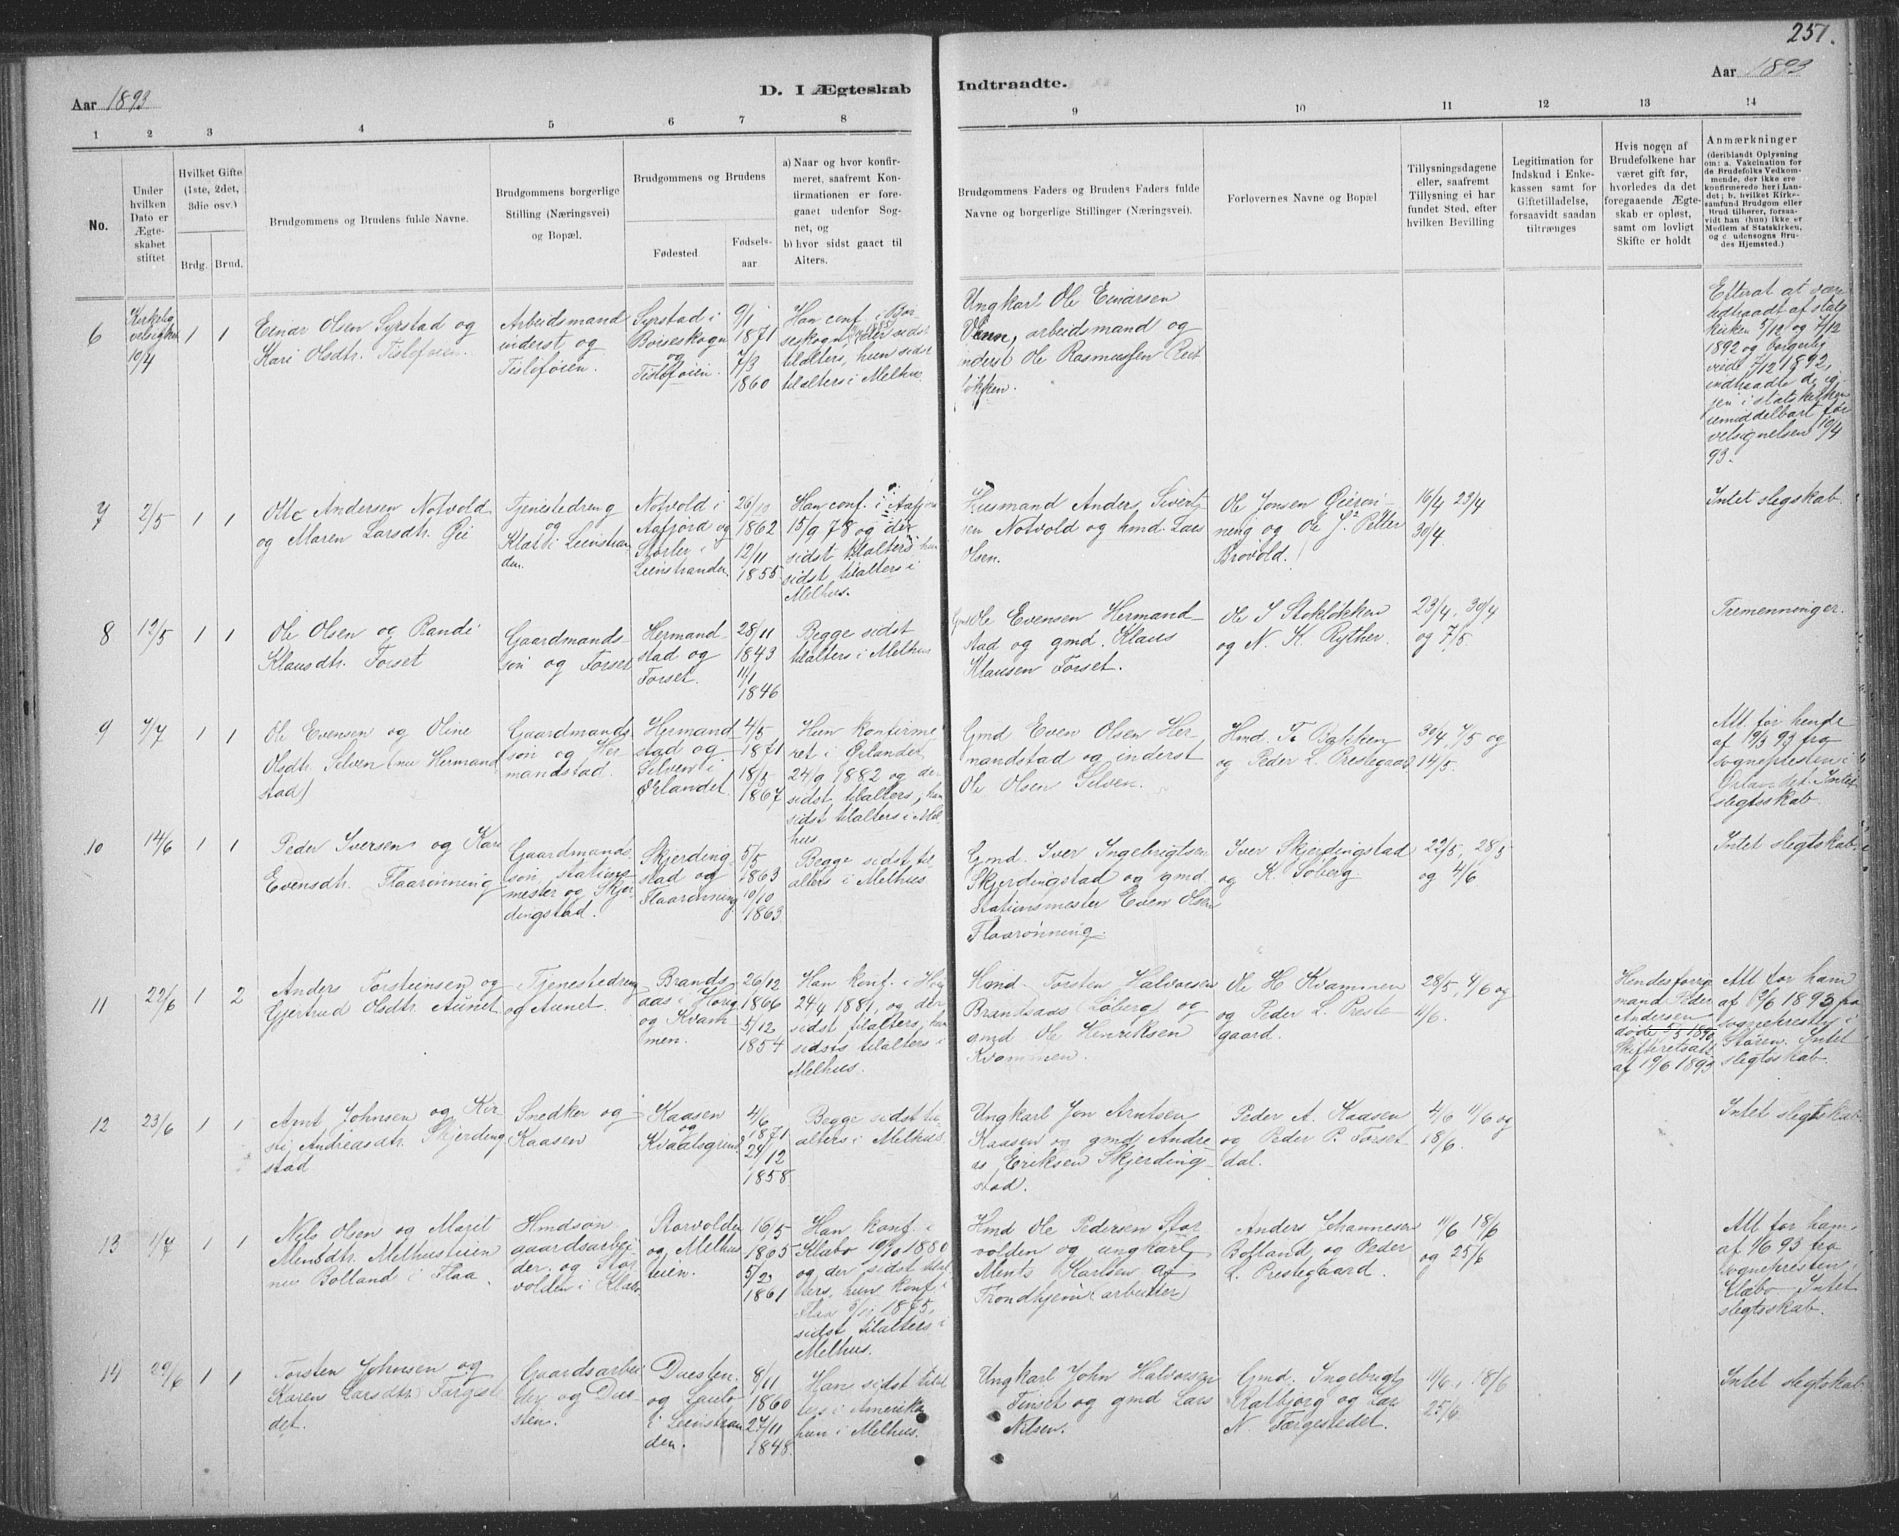 257.
Aar 1893
D. I Ægteskab Indtraadte.
Aar 1893
1 2 3 4 5 6 7 8 9 10 11 12 13 14
No.
Under hvilken Dato er Ægteskabet stiftet
Hvilket Gifte (1ste, 2det, 3die osv.)
Brdg. Brud.
Brudgommens og Brudens fulde Navne.
Brudgommens borgerlige Stilling (Næringsvei) og Bopæl.
Brudgommens og Brudens
Fødested.
Fødsels-
aar
a) Naar og hvor konfir-
meret, saafremt Kon-
firmationen er fore-
gaaet udenfor Sog-
net, og
b) hvor sidst gaaet til
Alters.
Brudgommens Faders og Brudens Faders fulde
Navne og borgerlige Stillinger (Næringsvei).
Forlovernes Navne og Bopæl
Tillysningsdagene
eller, saafremt
Tillysning ei har
fundet Sted, efter
hvilken Bevilling
Legitimation for
Indskud i Enke-
kassen samt for
Giftetilladelse,
forsaavidt saadan
tiltrænges
Hvis nogen af
Brudefolkene har
været gift før,
hvorledes da det
foregaaende Ægte-
skab er opløst,
samt om lovligt
Skifte er holdt
Anmærkninger
(deriblandt Oplysning
om: a. Vakcination for
de Brudefolks Vedkom-
mende, der ikke ere
konfirmerede her i Lan-
det; b. hvilket Kirke-
samfund Brudgom eller
Brud tilhører, forsaa-
vidt han (hun) ikke er
Medlem af Statskirken,
og c. udensogns Bru-
des Hjemsted.)
6
Kirkelig
10/4
1 1
Einar Olsen Syrstad og
Kari Olsdtr. Tisløfoien.
Arbeidsmand
inderst og
Tisløfoien.
Syrstad i
Børseskogn
og
Tisløfoien.
9/1
1871
7/3
1860
Han conf. i Bør
seskogn
tilalters, hun sidst
tilalters i Melhus
Ungkarl Ole Einarsen
Venn, arbeidsmand og
inderst Ole Rasmussen
løkken.
Efterat at være
udtraadt af stats
kirken 5/12 og 7/12
1892 og borgerlig
viede 7/12 1892,
indtraadte de ig-
jen i statskirken
umiddelbart før
velsignelsen 10/4
93.
7
2/5
1 1
Otto Andersen Notvold
og Maren Larsdtr. Øie
Tjenestedreng
og
Klæt i Leinstran
den.
Notvold i
Aafjord og
Storlev i
Leinstranden
26/10
1862
12/11
1855
Han conf. i Aafjor
15/9 78 og der
sidst tilalters, hun
sidst tilalters i
Melhus.
Husmand Anders Sivert
sen Notvold og hmd Lars
Olsen.
Ole Jonsen
ning og Ole J. Petter
Brovold.
16/4 23/4
30/4
Intet slegskab.
8
12/5
1 1
Ole Olsen og Randi
Klausdtr. Forset
Gaardmands
søn og Forset
Hermand-
stad og
Forset.
28/11
1843
11/1
1846
Begge sidst
tilalters i Melhus
Gmd Ole Evensen Hermand-
stad og gmd. Klaus
Klausen Forset.
Ole I Stokløkken
og N. K. Ryther.
23/4, 30/4
og 7/5.
Tremenninger.
9
7/7
1 1
Ole Evensen og Oline
Olsdtr. Selven (nu Hermand
stad)
Gaardmands
søn og Her
mandstad.
Hermand
stad og
Selven i
Ørlandet.
4/5
1871
18/5
1867
Hun konfirme
ret i Ørlandet
24/9 1882 og der
sidst tilalters, han
sidst tilalters i Mel
hus.
Gmd Even Olsen Her-
mandstad og inderst
Ole Olsen Selven.
Hmd. T. Bakken
og Peder L. Prestegaard
30/4, 7/5 og
14/5.
Att. for hende
af 19/3 93 fra
sognepresten i
Ørlandet. Intet
slegtsskab.
10
14/6
1 1
Peder Iversen og Kari
Evensdtr. Flaarønning
Gaardmands
søn, stations
mester og Skjer
dingstad.
Skjerding-
stad og
Flaarønning
5/5
1863
10/10
1863.
Begge sidst til
alters i Melhus.
Gmd. Iver Ingebrigtsen
Skjerdingstad og gmd.
Stationsmester Even Olsen
Flaarønning.
Iver Skjerdingstad
og K. Søberg.
22/5, 28/5
og 4/6
Intet slegtskab.
11
22/6
1 2
Anders Torsteinsen og
Gjertrud Olsdtr. Aunet
Tjenestedreng
og Aunet.
Brands
aas i Horg
og Kvam
men.
26/12
1866
5/12
1854
Han konf. i Horg
24/4 1881, og der
sidst tilalters, hun
sidst tilalters i
Melhus.
Hmd. Torsten Halvorsen
Brandsaas (Løberg) og
gmd Ole Henriksen
Kvammen.
Ole H Kvammen
og Peder L. Preste-
gaard.
28/5, 4/6 og
11/6.
Hendes forrige
mand Peder
Andersen
døde 5/5 1890
Skifteretsatt.
af 19/6 1893
Att for ham
af 12/6 1893 fra
sognepresten i
Støren. Intet
slegtsskab.
12
23/6
1 1
Arnt Johnsen og Kir
sti Andreasdtr. Skjerding
stad
Snedker og
Kaasen
Kaasen
og
Kvaalsgrind
4/6
1871
24/12
1858
Begge sidst til
alters i Melhus.
Ungkarl Jon Arntsen
Kaasen og gmd. Andre
as Eriksen Skjerding-
stad.
Peder A. Kaasen
og Peder P. Forset
dal.
4/6 11/6 og
18/6.
Intet slegtskab.
13
1/7
1 1
Nils Olsen og Marit
Mensdtr. Melhusteien
nu Bolland i Flaa.
Hmdsøn
gaardsarbei
der og Stor
volden i Klæbo
Storvolden
og Melhus
teien.
16/5
1865
5/2
1861
Han konf. i
Klæbo 10/10 1880
og der sidst tilal
ters, hun konf. i
Flaa 1875,
sidst tilalters i
Melhus.
Hmd Ole Pedersen Stor
volden og ungkarl
Ments Karlsen af
Trondhjem (arbeider)
Anders Johannesen
Bolland og Peder
L. Prestegaard.
11/6 18/6
og 25/6
Att for ham
af 1/6 93 fra
sognepresten i
Klæbo. Intet
slegtsskab.
14
29/6
1 1
Torsten Johnsen og
Karen Larsdtr. Færgeste
det.
Gaardsarbei
der og Due-
sten.
Duesten
og
i Leinstran
den.
8/11
1860
27/11
1848
Han sidst tilal
ters i Amerika
hun i Melhus.
Ungkarl John Halvorsen
Finset og gmd Lars
Nilsen.
Gmd. Ingebrigt
Kalbjorg og Lars
N. Færgestedet.
11/6, 18/6
25/6
Intet slegtskab